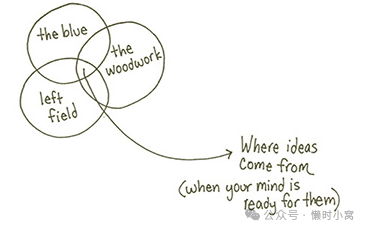 the blue
the
woodwork
left
field
Where ideas
come from
(when your mind is
ready for them)
公众号 · 懒时小窝